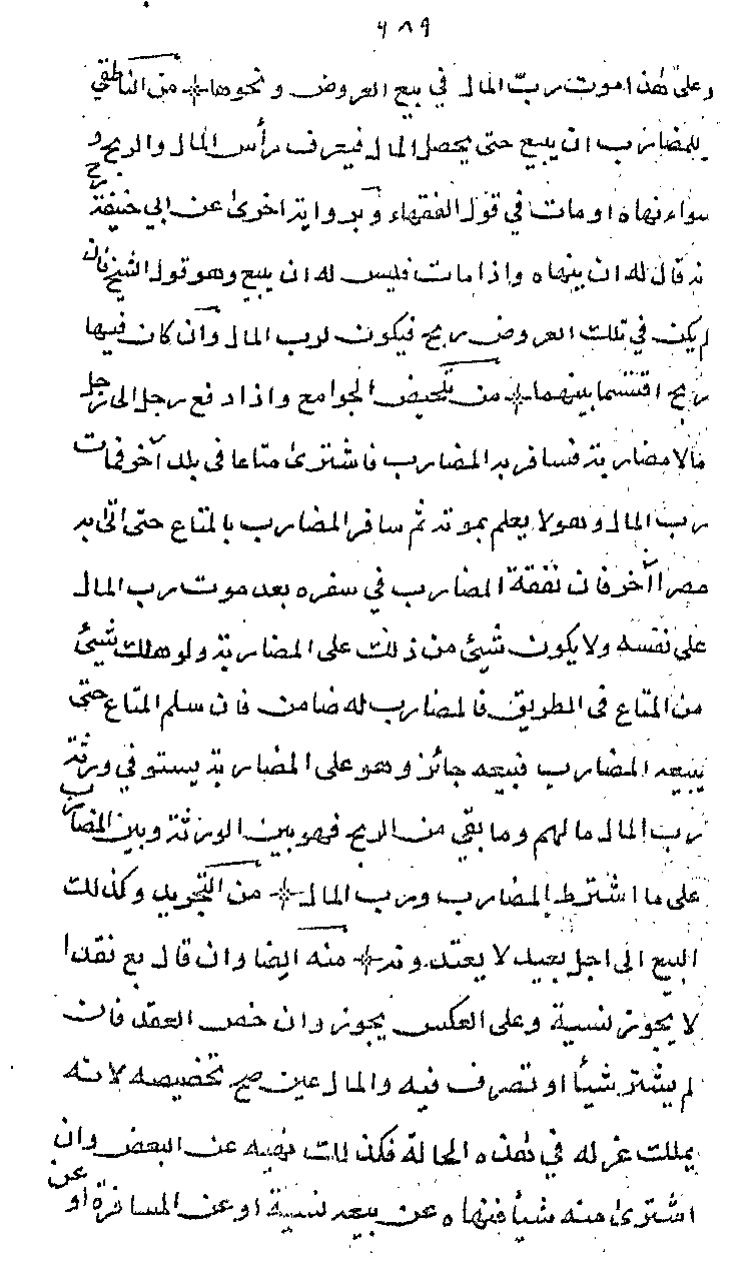 ٤٨٩
وعلى هذا موت رب المال في بيع العروض ونحوها من الناطفي
للمضارب ان يبيع حتى يحصل المال فيعرف رأس المال والربح و
سواء نهاه او مات في قول الفقهاء وبرواية اخرى عن ابي حنيفة رح
نه قال له ان ينهاه واذا مات فليس له ان يبيع وهو قول الشيخ فان
لم يكن في تلك العروض ربح فيكون لرب المال وان كان فيها
ربح اقتسما بينهما من تلخيص الجوامع واذا دفع رجل الى رجل
مالا مضاربة فسافر به المضارب فاشترى متاعا في بلد آخر فمات
رب المال وهو لا يعلم بموته ثم سافر المضارب بالمتاع حتى اتى به
مصرا آخر فان نفقة المضارب في سفره بعد موت رب المال
على نفسه ولا يكون شيئ من ذلك على المضاربة ولو هلك شيئ
من المتاع في الطريق فالمضارب له ضامن فان سلم المتاع حتى
يبيعه المضارب فبيعه جائز وهو على المضاربة يستوفي ورثة
رب المال مالهم وما بقي من الربح فهو بين الورثة وبين المضارب
على ما اشترط المضارب ورب المال من التجريد وكذلك
البيع الى اجل بعيد لا يعتد ونه منه ايضا وان قال بع نقدا
لا يجوز نسية وعلى العكس يجوز وان خص العقد فان
لم يشتر شيأ او تصرف فيه والمال عين صح تخصيصه لانه
يملك عزله في هذه الحالة فكذلك نهيه عن البعض وان
اشترى منه شيأ فنهاه عن بيعه نسية او عن المسافرة او عن